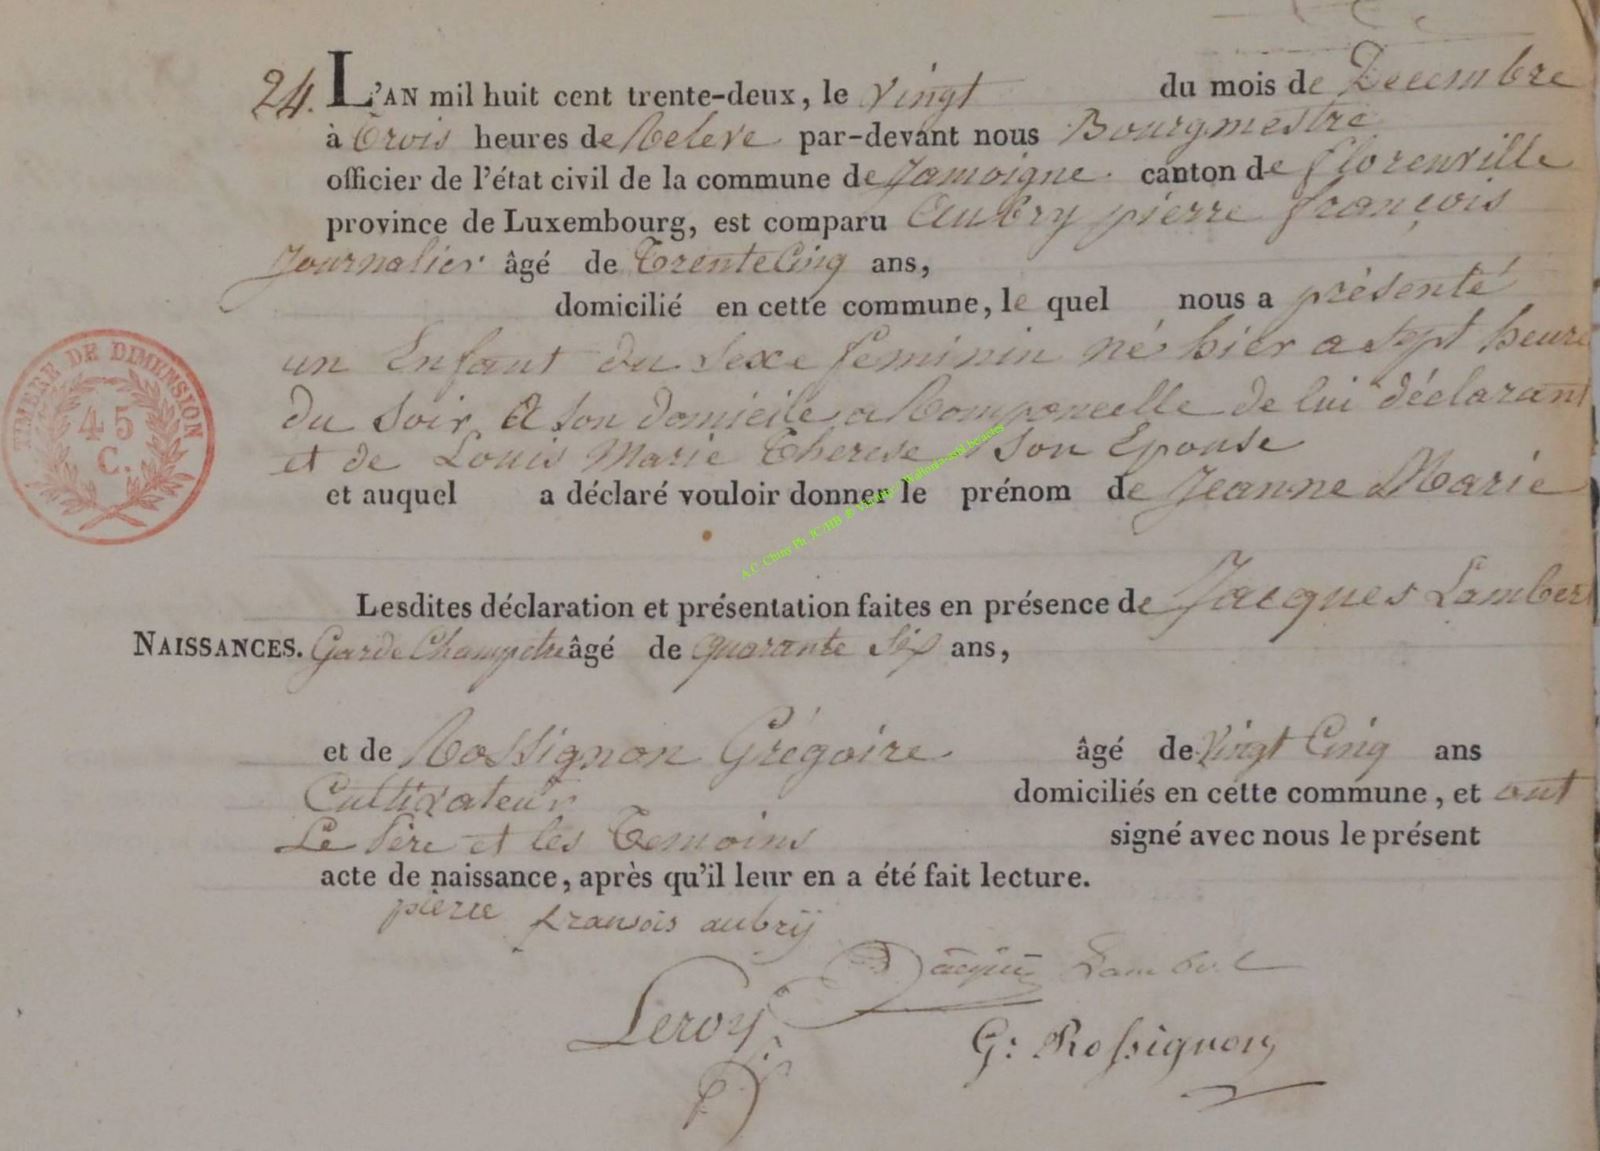 24. L'AN mil huit cent trente-deux, le vingt du mois de Decembre
à trois heures de Relevé par-devant nous Bourgmestre
officier de l'état civil de la commune de Jamoigne canton de florenville
province de Luxembourg, est comparu Aubry pierre françois
Journalier âgé de trente Cinq ans,
domicilié en cette commune, le quel nous a présenté
un Enfant du sexe feminin né hier a sept heure
du soir a son domicile a Romponcelle de lui déclarant
et de Louis Marie Therese son Epouse
et auquel a déclaré vouloir donner le prénom de Jeanne Marie
Lesdites déclaration et présentation faites en présence de Jacques Lambert
NAISSANCES. Garde Champetre âgé de quarante Six ans,
et de Rossignon Grégoire âgé de vingt Cinq ans
Cultivateur domiciliés en cette commune, et ont
Le Père et les Temoins signé avec nous le présent
acte de naissance, après qu'il leur en a été fait lecture.
pierre fransois aubrÿ
Jacques Lambert
Leroy
G: Rossignon
TIMBRE DE DIMENSION
45
C.